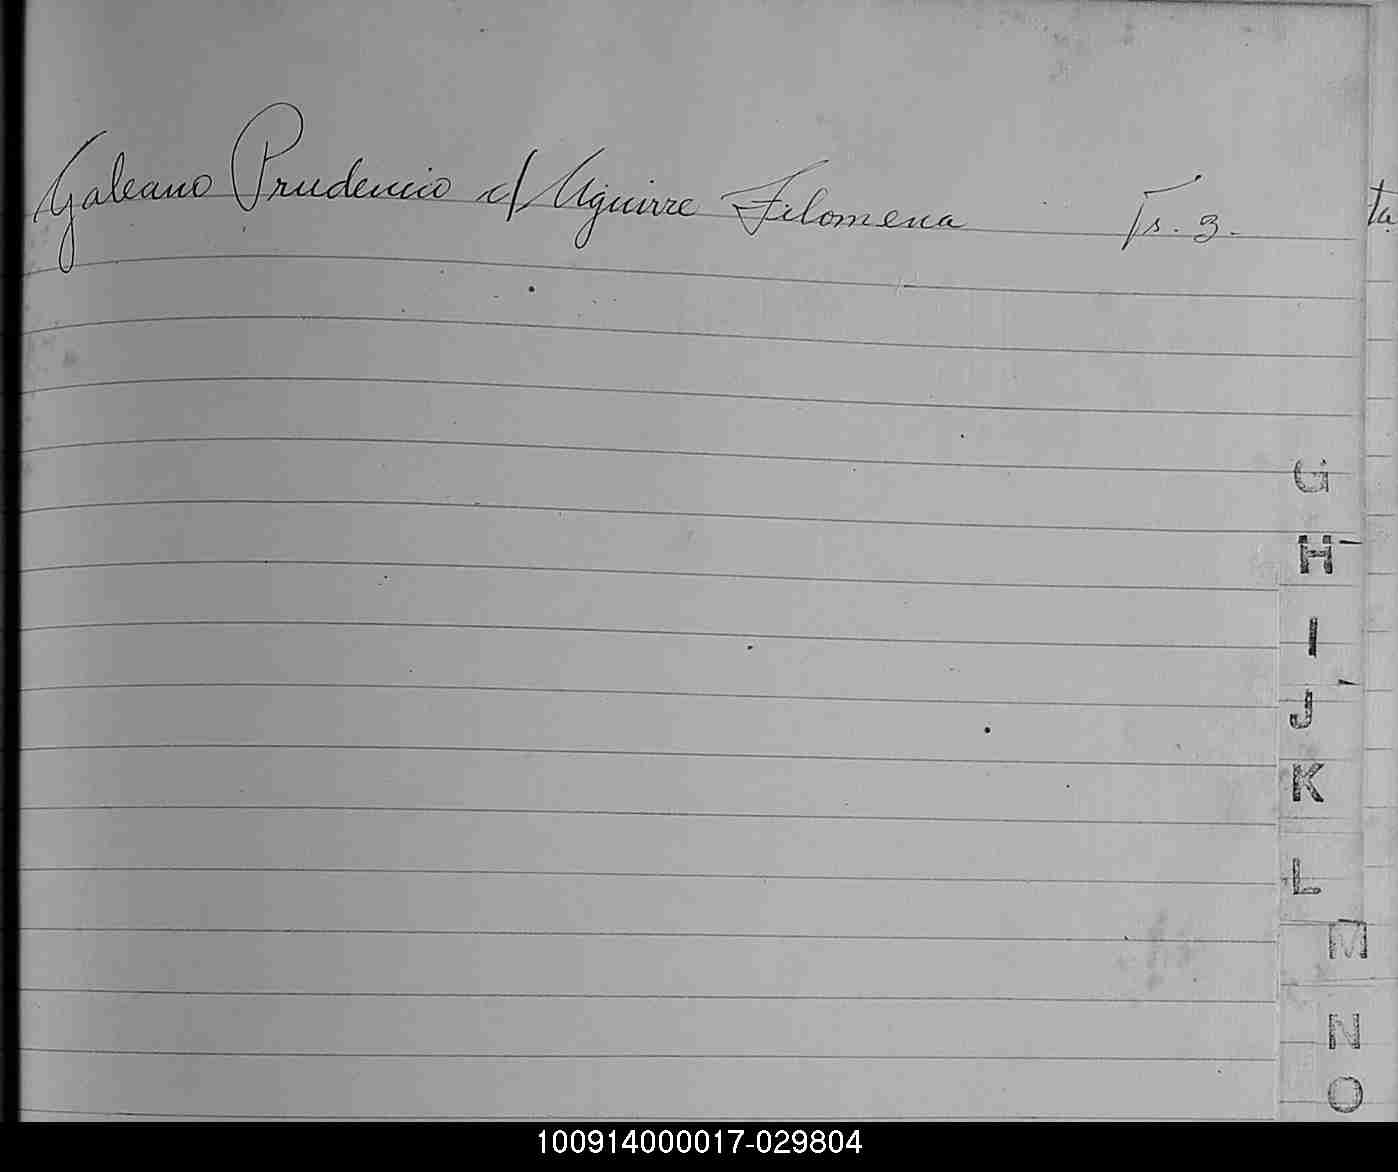 Galeano Prudencio c/ Aguirre Filomena Fs. 3.
ta
G
H
I
J
K
L
M
N
O
100914000017-029804